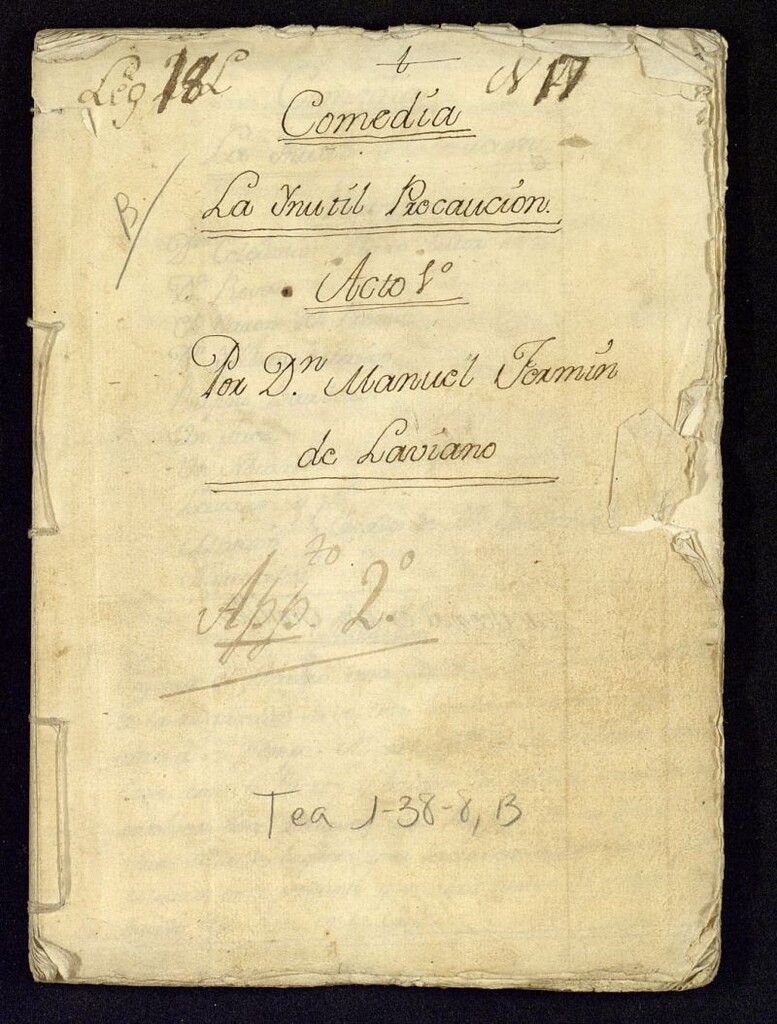 Leg.º 18 L
N 17
Comedia
La Ynutil Precaucion.
Acto 1º
Por D.n Manuel Fermin
de Laviano
App.to 2.º
B/
Tea 1-38-8, B